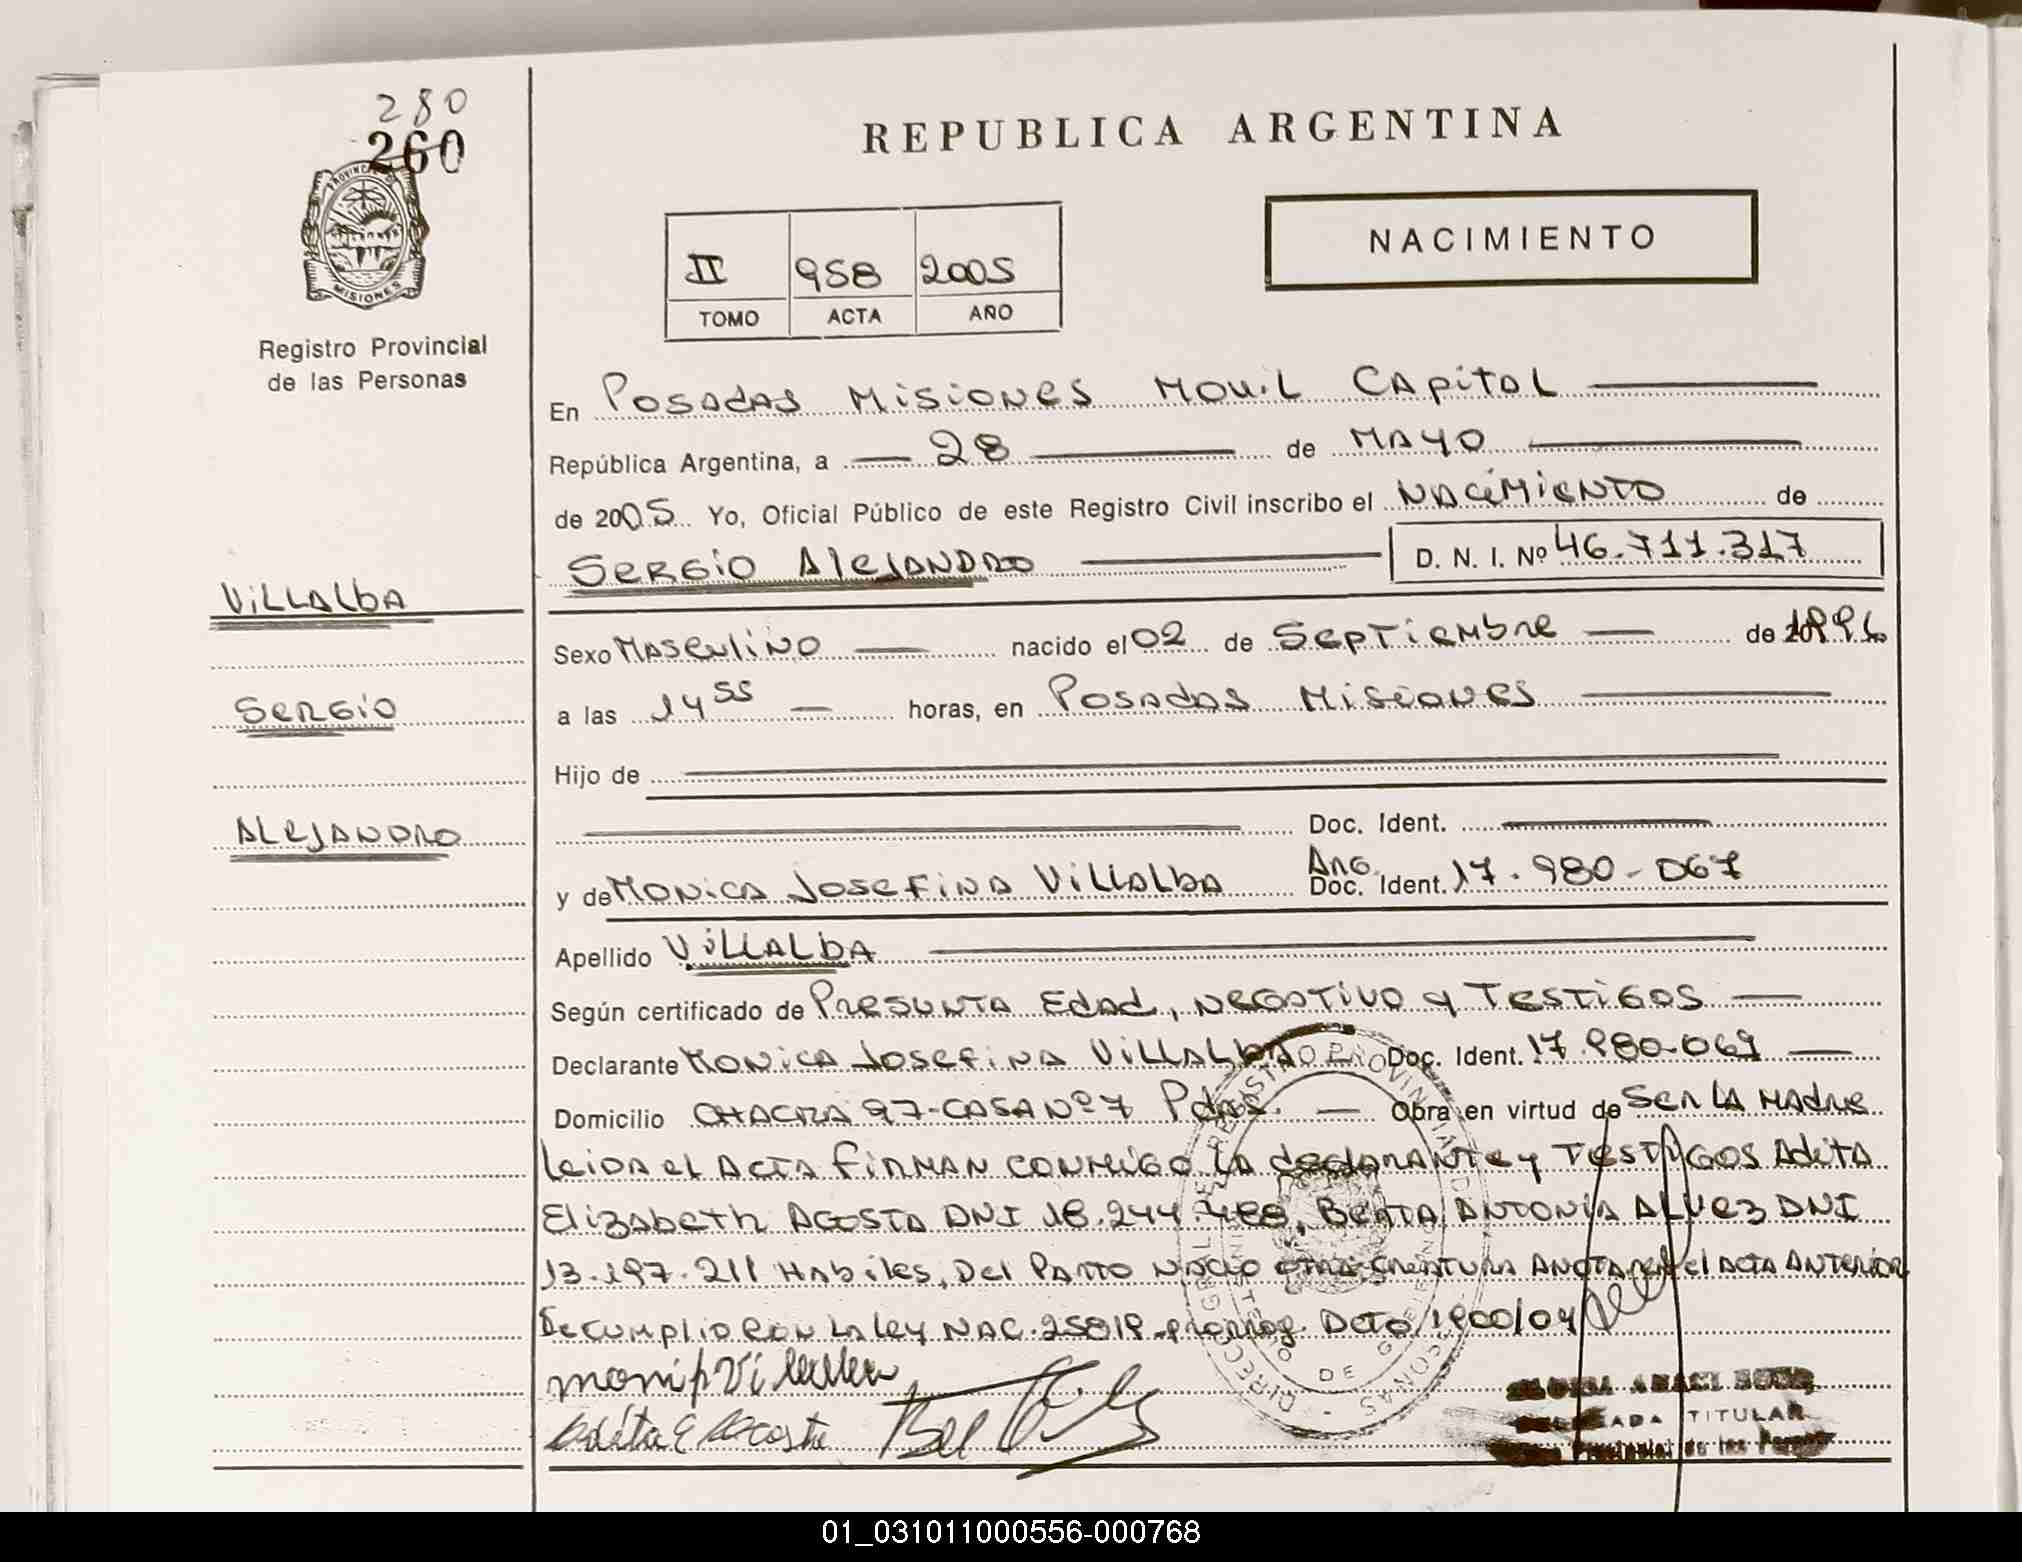 280
260
PROVINCIA DE
MISIONES
Registro Provincial
de las Personas
REPUBLICA ARGENTINA
NACIMIENTO
II 958 2005
TOMO ACTA AÑO
En Posadas Misiones Movil Capital
República Argentina, a 28 de Mayo
de 2005 Yo, Oficial Público de este Registro Civil inscribo el Nacimiento de
Sergio Alejandro D. N. I. Nº 46.711.317
Villalba
Sergio
Alejandro
Sexo Masculino nacido el 02 de Septiembre de 1996
a las 14 55 horas, en Posadas Misiones
Hijo de
Doc. Ident.
y de Monica Josefina Villalba Arg. Doc. Ident. 17.980-067
Apellido Villalba
Según certificado de Presunta Edad, Negativo y Testigos
Declarante Monica Josefina Villalba Doc. Ident. 17.980.069
Domicilio CHACRA 97-CASA Nº 7 Pdas. Obra en virtud de Ser la Madre
Leida el Acta firman conmigo la declarante y Testigos Adita
Elizabeth Acosta DNI 18.244.488, Berta Antonia Alvez DNI
13.197.211 Habiles, Del Parto Nacio otra criatura Anotar en el Acta Anterior
Se cumplio con la ley NAC. 25819 prorrog. Dcto 1900/04
Adita E Acosta
TITULAR
Provincial de las
01_031011000556-000768